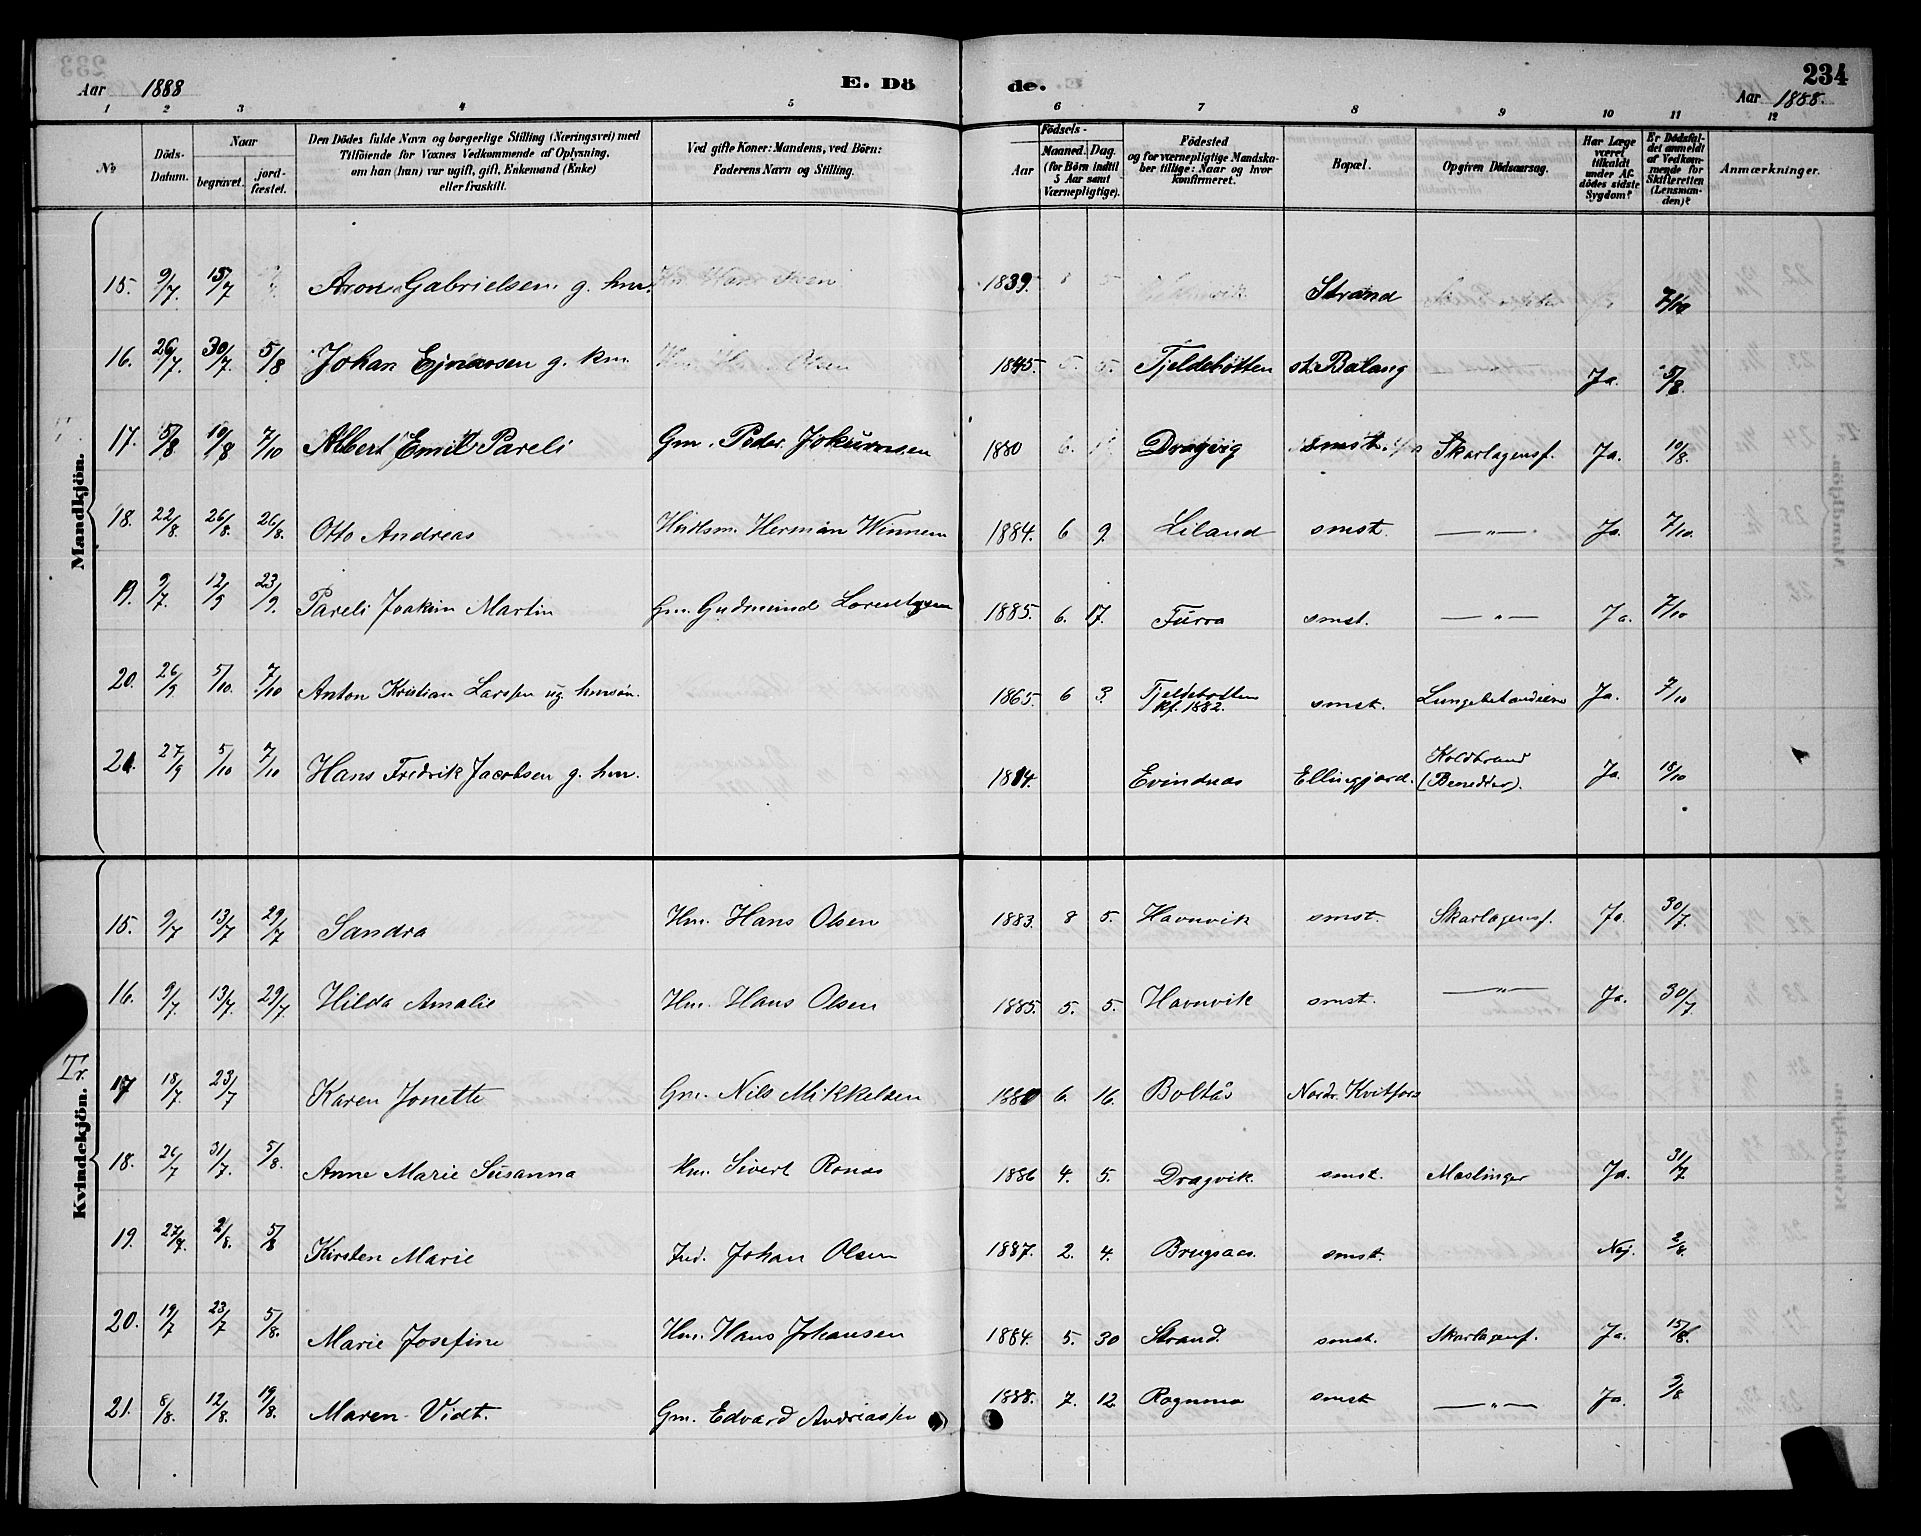 Aar 1888 E. Dö de. 234
Aar 1888.
1 2 3 4 5 6 7 8 9 10 11 12
No
Döds-Datum.
Naar begravet. jordfæstet.
Den Dödes fulde Navn og borgerlige Stilling (Næringsvei) med
Tilföiende for Voxnes Vedkommende af Oplysning,
om han (hun) var ugift, gift, Enkemand (Enke)
eller fraskilt.
Ved gifte Koner: Mandens, ved Börn:
Faderens Navn og Stilling.
Födsels-
Aar Maaned. Dag.
(for Börn indtil
5 Aar samt
Værnepligtige).
Födested
og for værnepligtige Mandska-
ber tillige: Naar og hvor
konfirmeret.
Bopæl.
Opgiven Dödsaarsag.
Har Læge
været
tilkaldt
under Af-
dödes sidste
Sygdom?
Er Dödsfal-
det anmeldt
af Vedkom-
mende for
Skifteretten
(Lensman-
den)?
Anmærkninger.
Mandkjön.
15. 9/7. 15/7 Aron Gabrielsen g. hm. 1839. Strand 7/10
16. 26/7. 30/7. 5/8 Johan Ejnarsen g. km. 1845. Tjeldebotten st. Balang Ja. 5/8.
17. 5/8 10/8 7/10 Albert Emil Pareli Gm. Peder Jokumsen 1880 6. Dragvig smst. Skarlagensf. Ja. 10/8.
18. 22/8. 26/8. 26/8. Otto Andreas Herman Winnem 1884. 6 9. Liland smst. —„— Ja. 7/10.
19. 9/7. 12/9 23/9. Pareli Joakim Martin Gm. Gudmund Lorentzen 1885. 6. 17. Furra smst. —„— Ja. 7/10
20. 26/9 5/10. 7/10 Anton Kristian Larssen ug. hmsön. 1865. 6 3. Tjeldebotten
kf. 1882. smst. Lungebetændelse Ja. 7/10
21. 27/9 5/10 7/10 Hans Fredrik Jacobsen g. hm. 1814. Evindnas Ellingjord. Koldbrand
(Benedder). Ja. 18/10
Kvindekjön.
15. 9/7 13/7 29/7 Sandra Hm. Hans Olsen 1883. 8 5. Havnvik smst. Skarlagensf. Ja 30/7.
16. 9/7. 13/7. 29/7 Hilda Amalie Hm. Hans Olsen 1885. 5. 5. Havnvik smst. —„— Ja. 30/7.
Tr. 17 18/7. 23/7 Karen Jonette Gm. Nils Mikkelsen 1880 6. 16. Boltås Nordr. Kvitfors
18. 26/7 31/7. 5/8. Anne Marie Susanna Hm. Sivert Ronas 1886 4. 5. Dragvik. smst. Mæslinger Ja. 31/7
19. 27/7. 2/8. 5/8 Kirsten Marie Ind. Johan Olsen 1887. 2. 4. smst. Nej. 2/8.
20. 19/7 23/7 5/8. Marie Josefine Hm. Hans Johansen 1884. 5. 30 Strand. smst. Skarlagensf. Ja. 15/8.
21. 8/8. 12/8. 19/8. Maren Vidt. Gm. Edvard Andreassen 1888. 7. 12. smst —„— Ja. 9/8